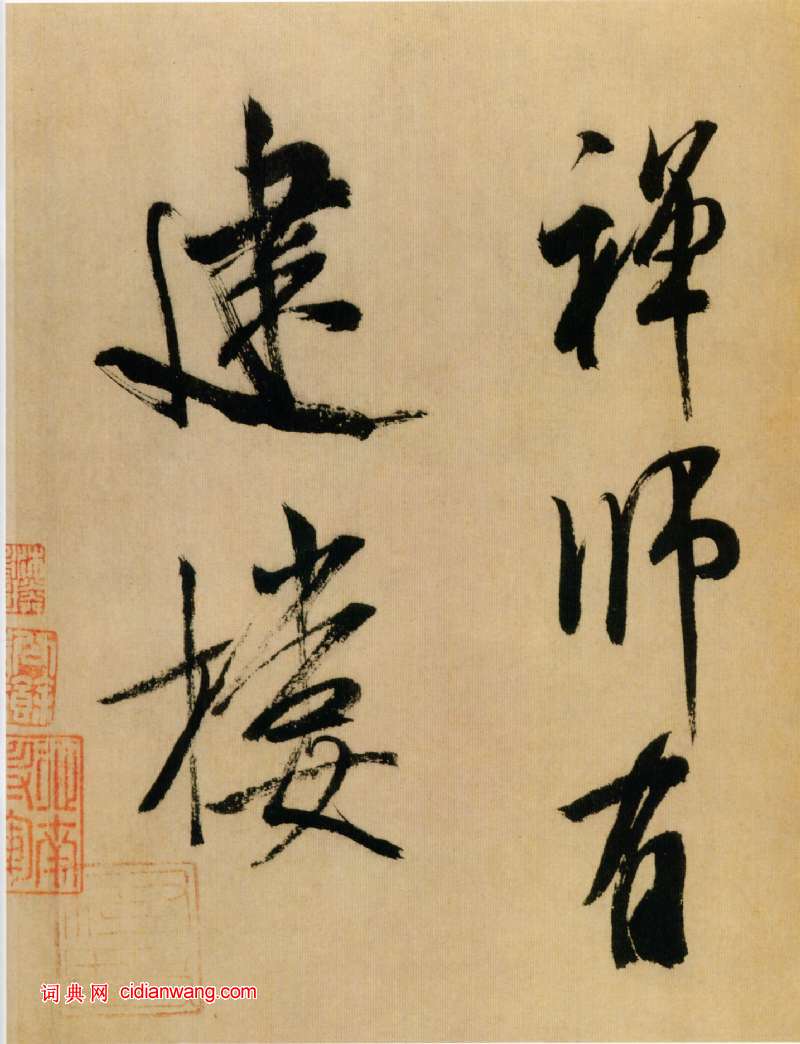 禪師有
建樓
词典网 cidianwang.com